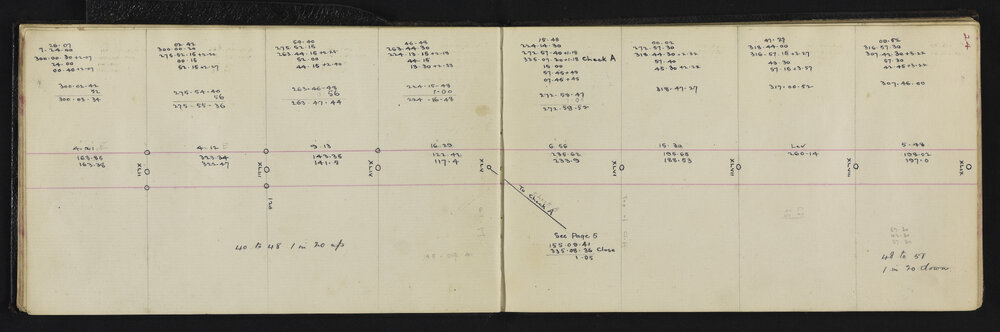 24
26.07
7.24.40
300.00.30+2.07
24.00
00.40+2.07
300.02.42
52
300.03.34
4.21
163.35
163.35
XLII
02.42
300.00.20
275.52.15+2.22
00.15
52.15+2.27
275.54.40
56
275.55.36
4.12
323.34
322.47
XLIII
50.40
275.52.15
263.44.15+2.22
52.00
44.15+2.40
263.46.48
56
263.47.44
9.13
143.35
141.5
XLIV
46.48
263.44.30
224.13.15+2.13
44.15
13.30+2.33
224.15.48
1.00
224.16.48
16.29
122.42
117.4
XLV
15.48
224.14.30
272.57.40+1.13
335.07.30+1.18 Check A
15.00
57.45+45
07.45+45
272.58.47
272.58.52
6.56
235.62
233.9
XLVI
00.02
272.57.30
318.44.30+2.32
57.40
45.30+2.22
318.47.27
15.30
195.65
188.53
XLVII
47.27
318.44.00
316.57.15+3.27
43.30
57.15+3.57
317.00.52
Lev
260.14
XLVIII
00.52
316.57.30
307.42.30+3.22
57.30
42.45+3.22
307.46.00
5.48
198.02
197.0
XLIX
120
To Check A
See Page 5
155.09.41
335.08.36 Close
1.05
40 to 48 1 in 20 up
48 to 51
1 in 20 down